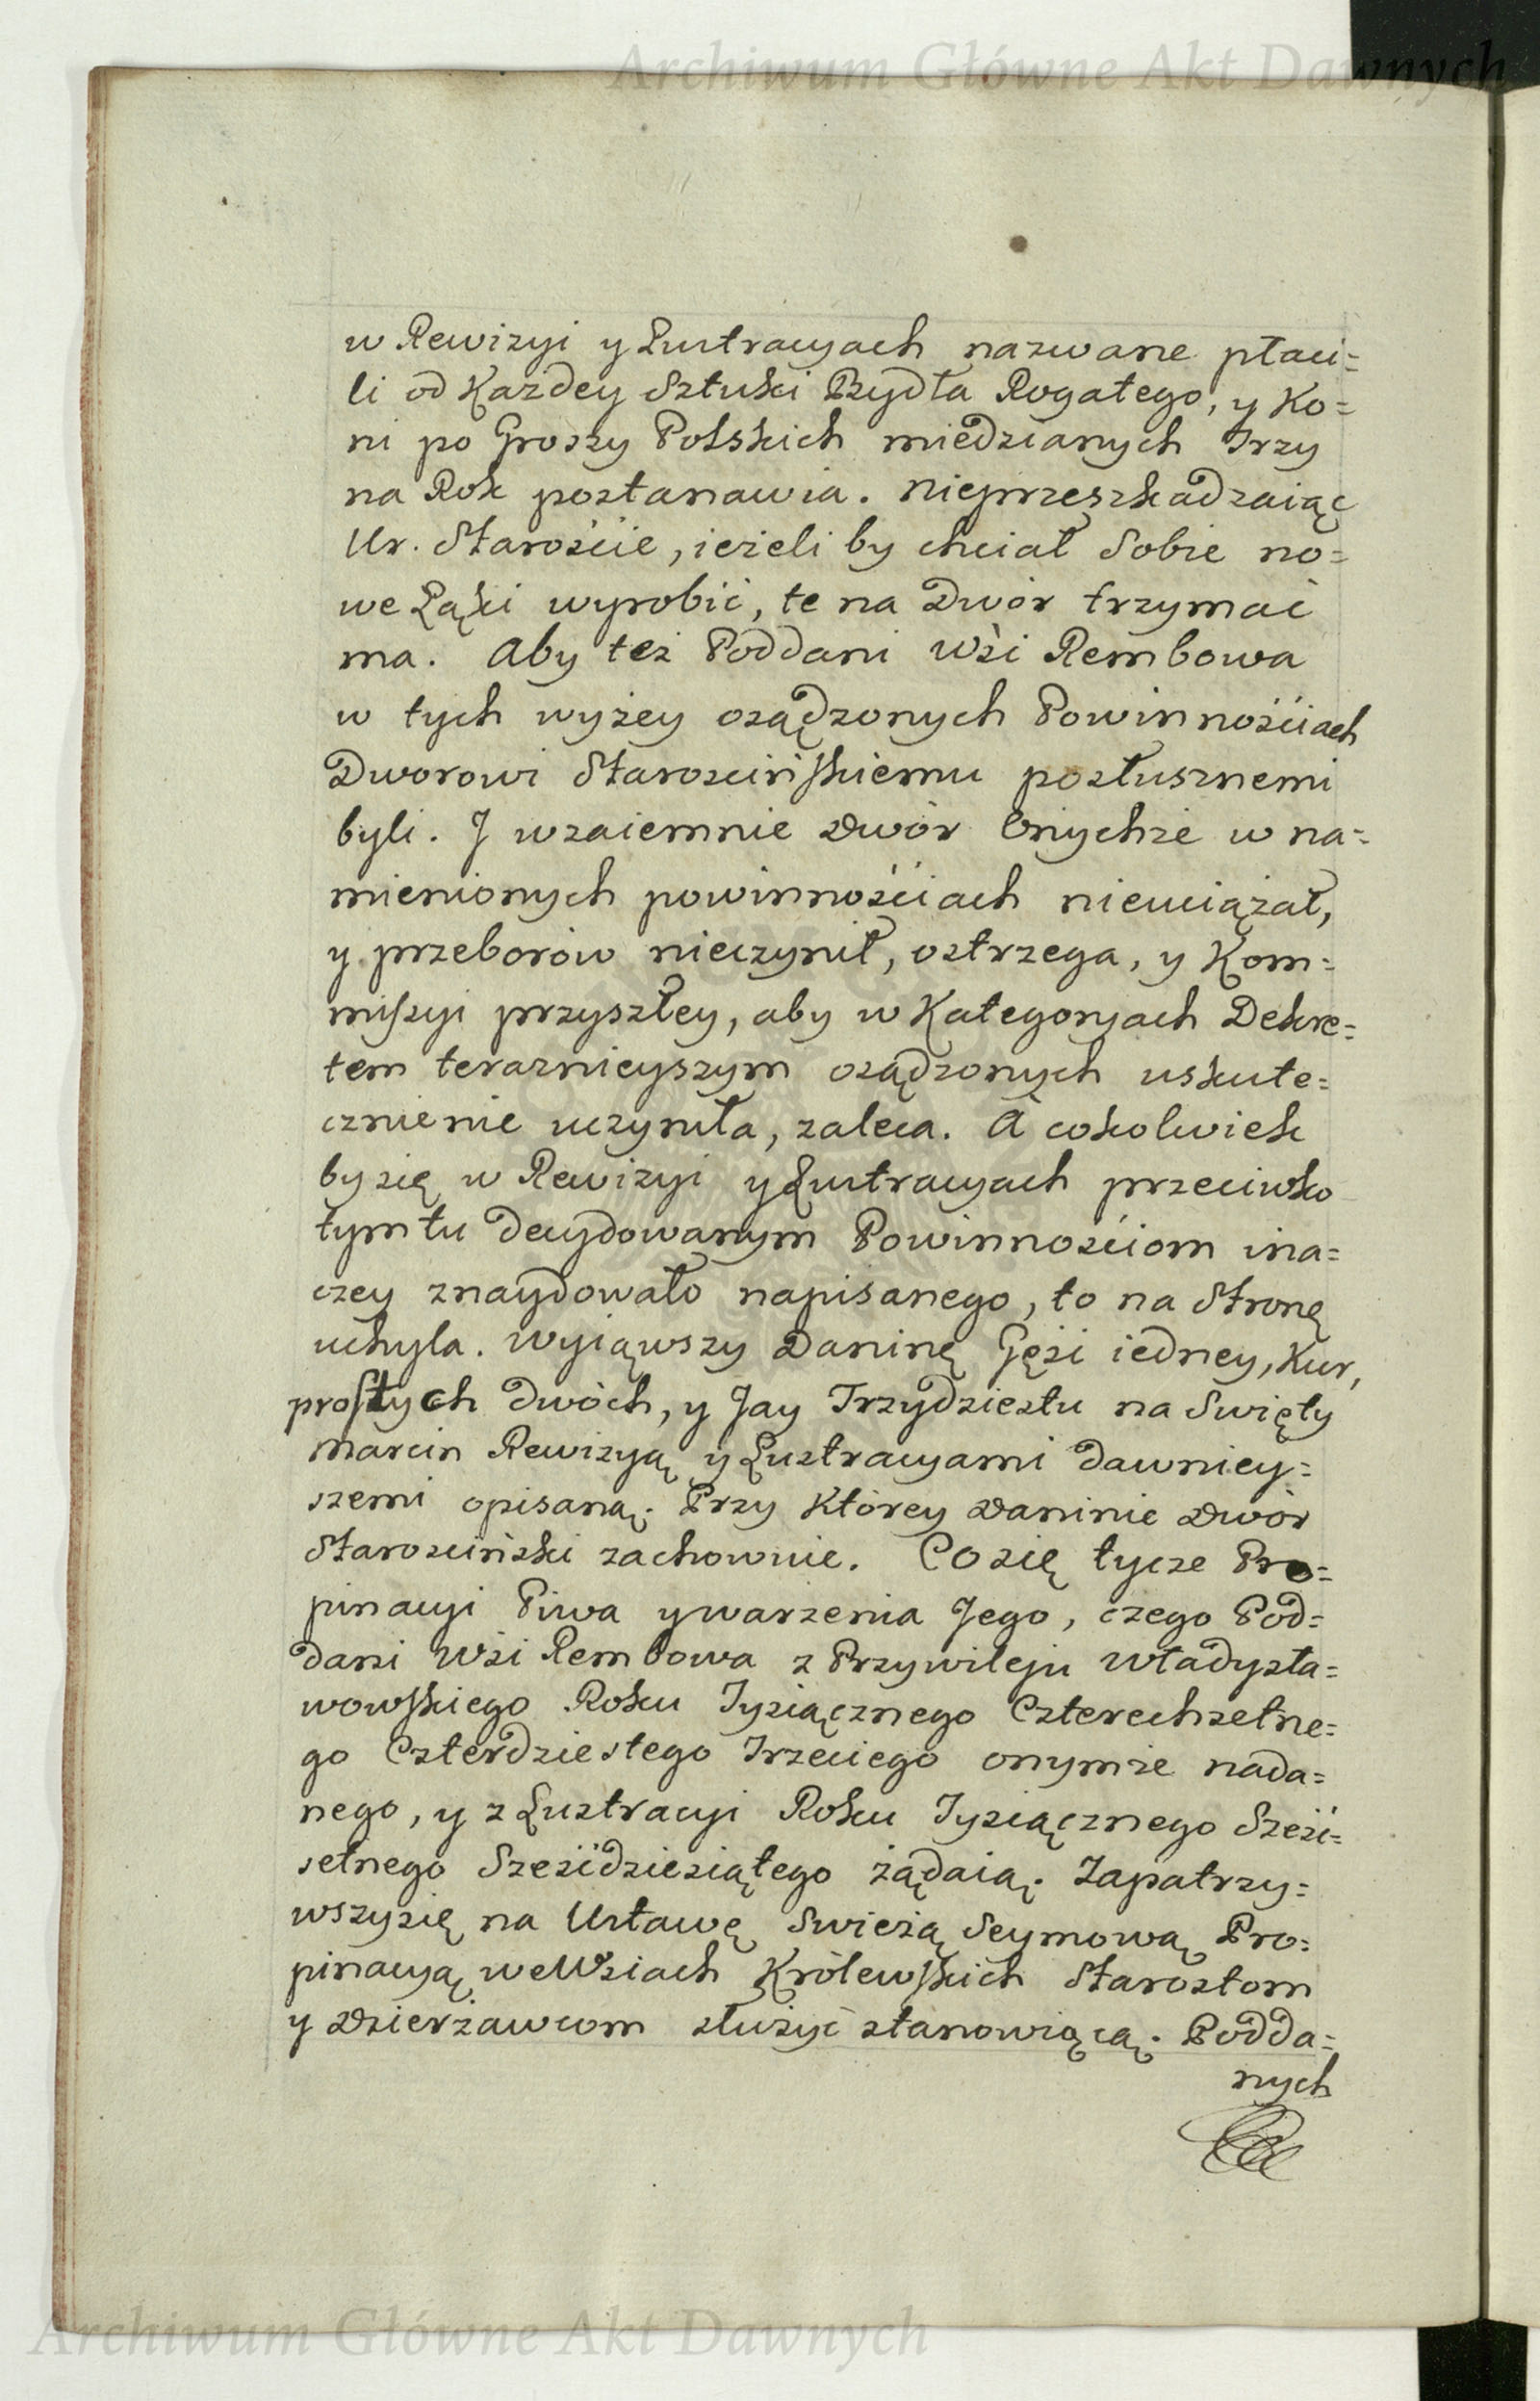 Archiwum Główne Akt Dawnych
w Rewizyi y Lustracyach nazwane płaci=
li od Każdey Sztuki Bydła Rogatego, y Ko=
ni po Groszy Polskich miedzianych Trzy
na Rok postanawia. Nieprzeszkadzaiąc
Ur. Starośćie, ieżeli by chciał Sobie no=
we Łąki wyrobić, te na Dwór trzymać
ma. Aby też Poddani Wśi Rembowa
w tych wyżey osądzonych Powinnośćiach
Dworowi Starościńskiemu posłusznemi
byli. J wzaiemnie Dwór Onychże w na=
mienionych powinnośćiach nieuciążał,
y przeborów nieczynił, ostrzega, y Kom=
missyi przyszłey, aby w Kategoryach Dekre=
tem teraznieyszym osądzonych uskute=
cznienie uczyniła, zaleca. A cokolwiek
by się w Rewizyi y Lustracyach przeciwko
tym tu decydowanym Powinnośćiom ina=
czey znaydowało napisanego, to na Stronę
uchyla. Wyiąwszy Daninę Gęśi iedney, Kur,
prostych dwóch, y Jay Trzydziestu na Swięty
Marcin Rewizyą y Lustracyami dawniey=
szemi opisaną. Przy Którey Daninie Dwór
Starościński zachownie. Co się tycze Pro=
pinacyi Piwa y warzenia Jego, czego Pod=
dani Wśi Rembowa z Przywileju Władysła=
wowskiego Roku Tysiącznego Czterechsetne=
go Czterdziestego Trzeciego onymże nada=
nego, y z Lustracyi Roku Tysiącznego Sześć=
setnego Sześćdziesiątego żądaią. Zapatrzy=
wszy się na Ustawę Swieżą Seymową Pro=
pinacyą we Wsiach Królewskich Starostom
y Dzierżawcom służyć stanowiącą. Podda=
nych
Archiwum Główne Akt Dawnych